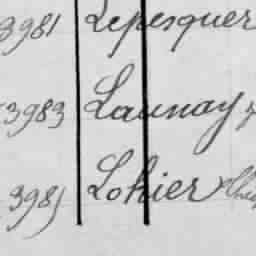 3981 Lepesquer
3983 Launay
3985 Lohier